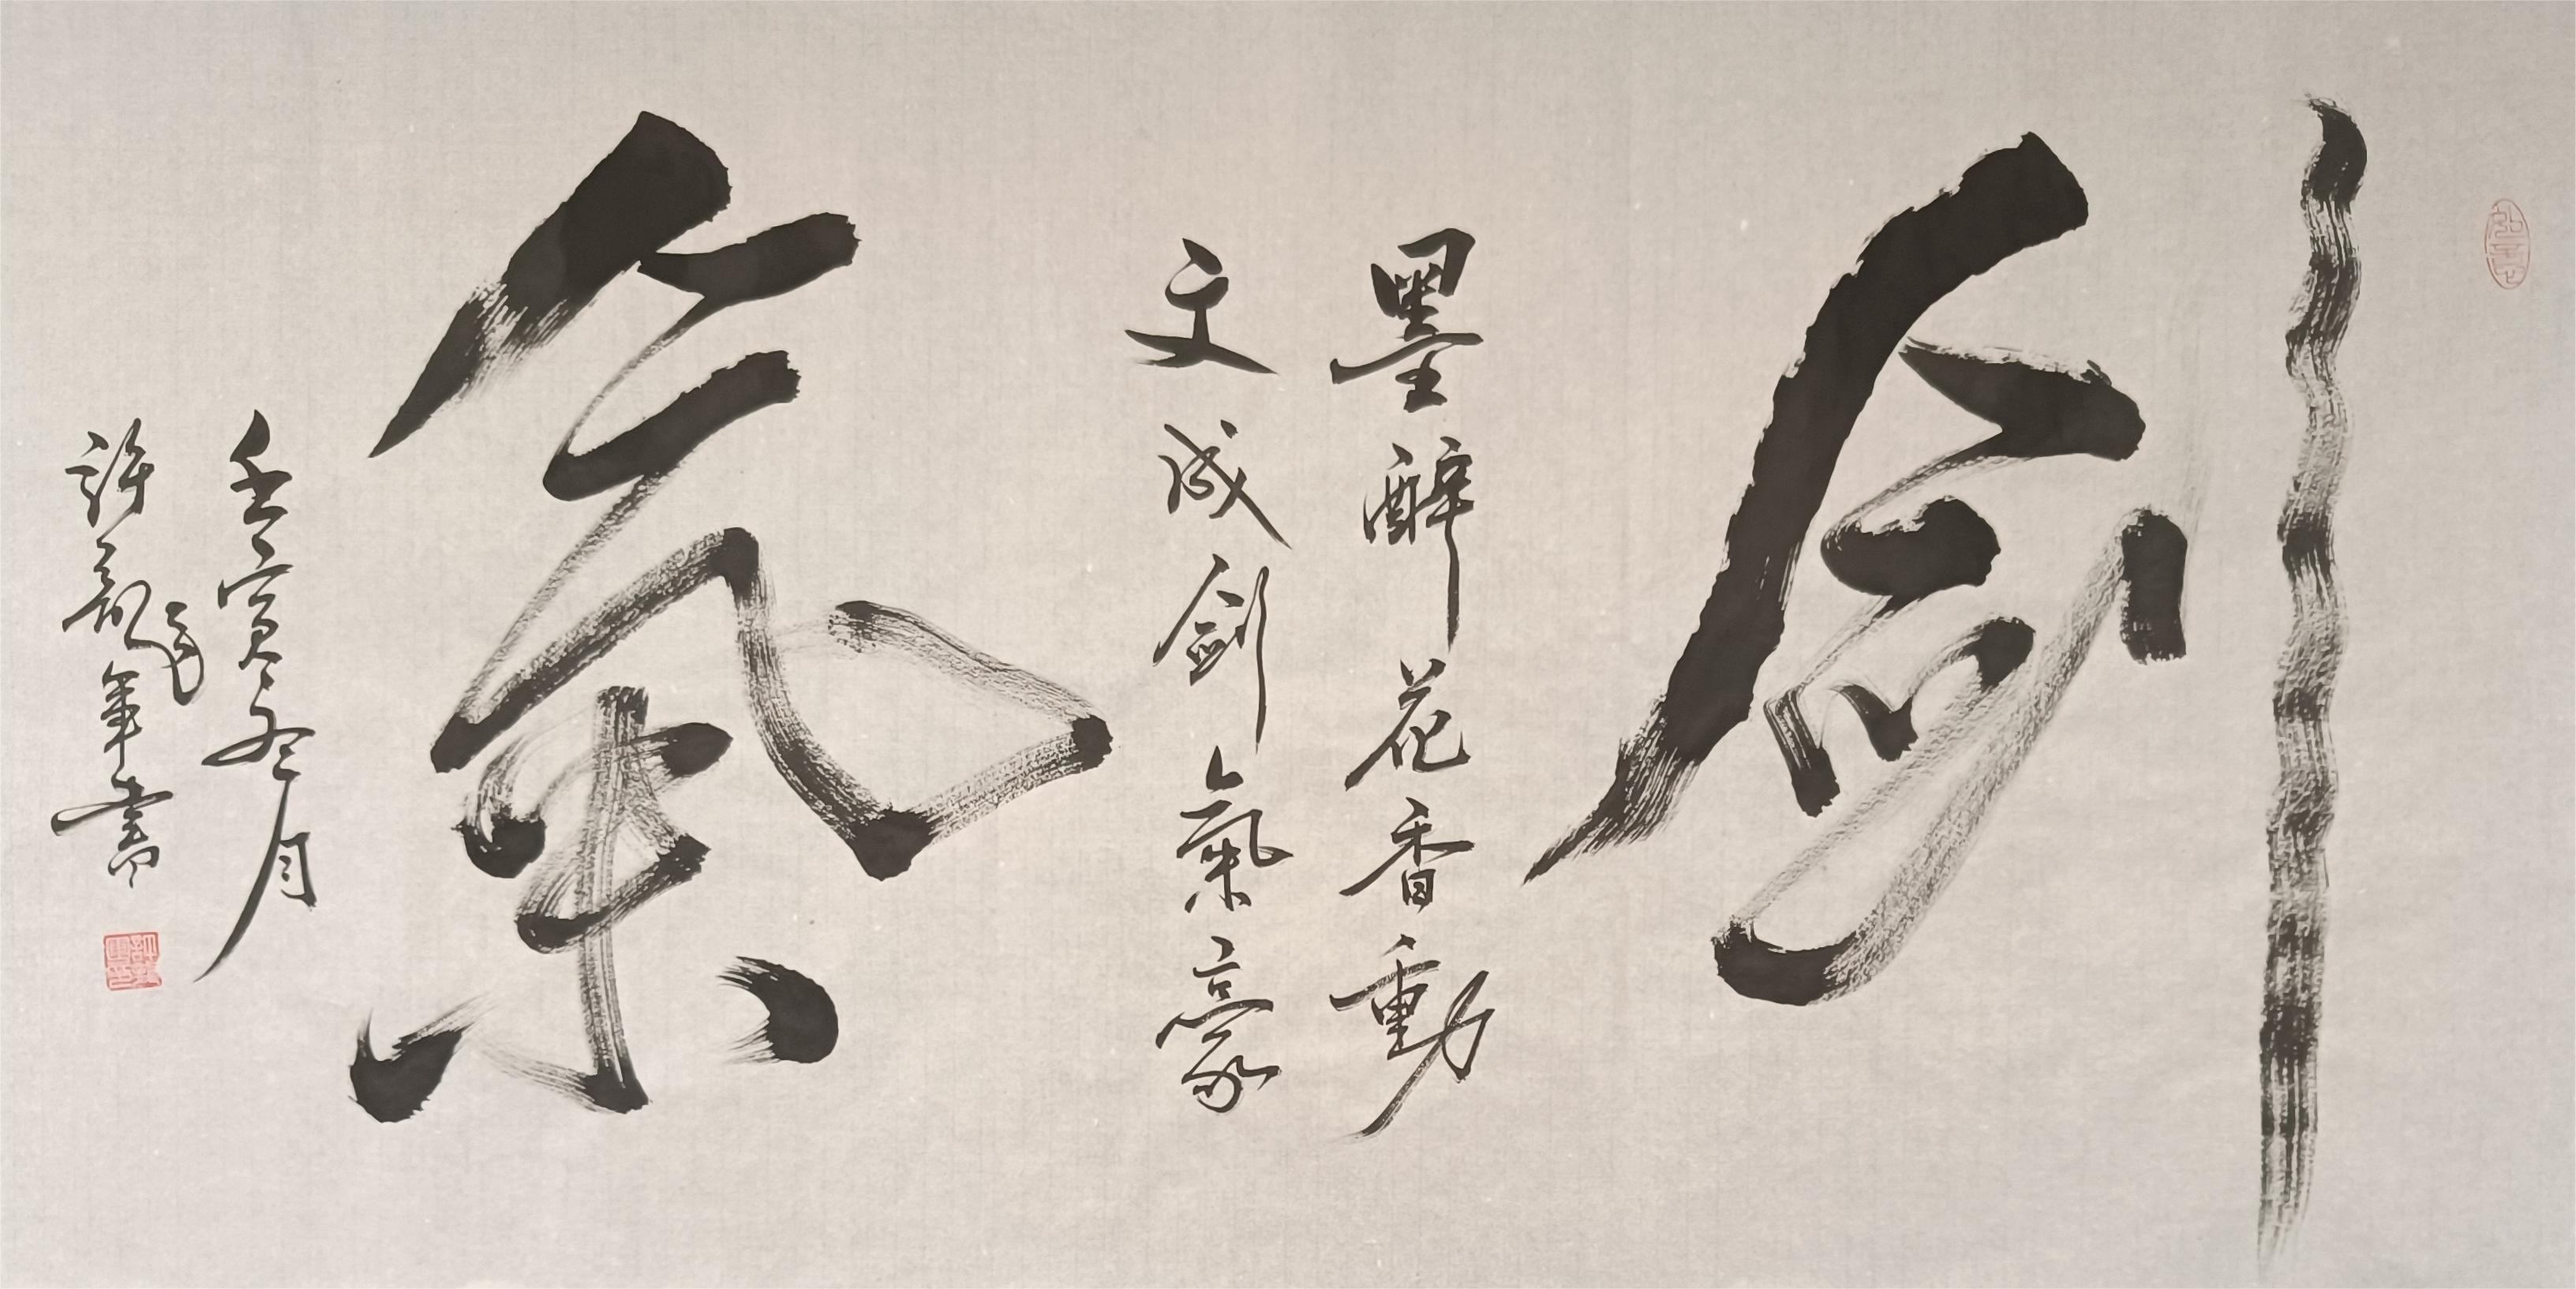 劍
墨醉花香動
文成劍氣豪
氣
壬寅冬月
許龍年書